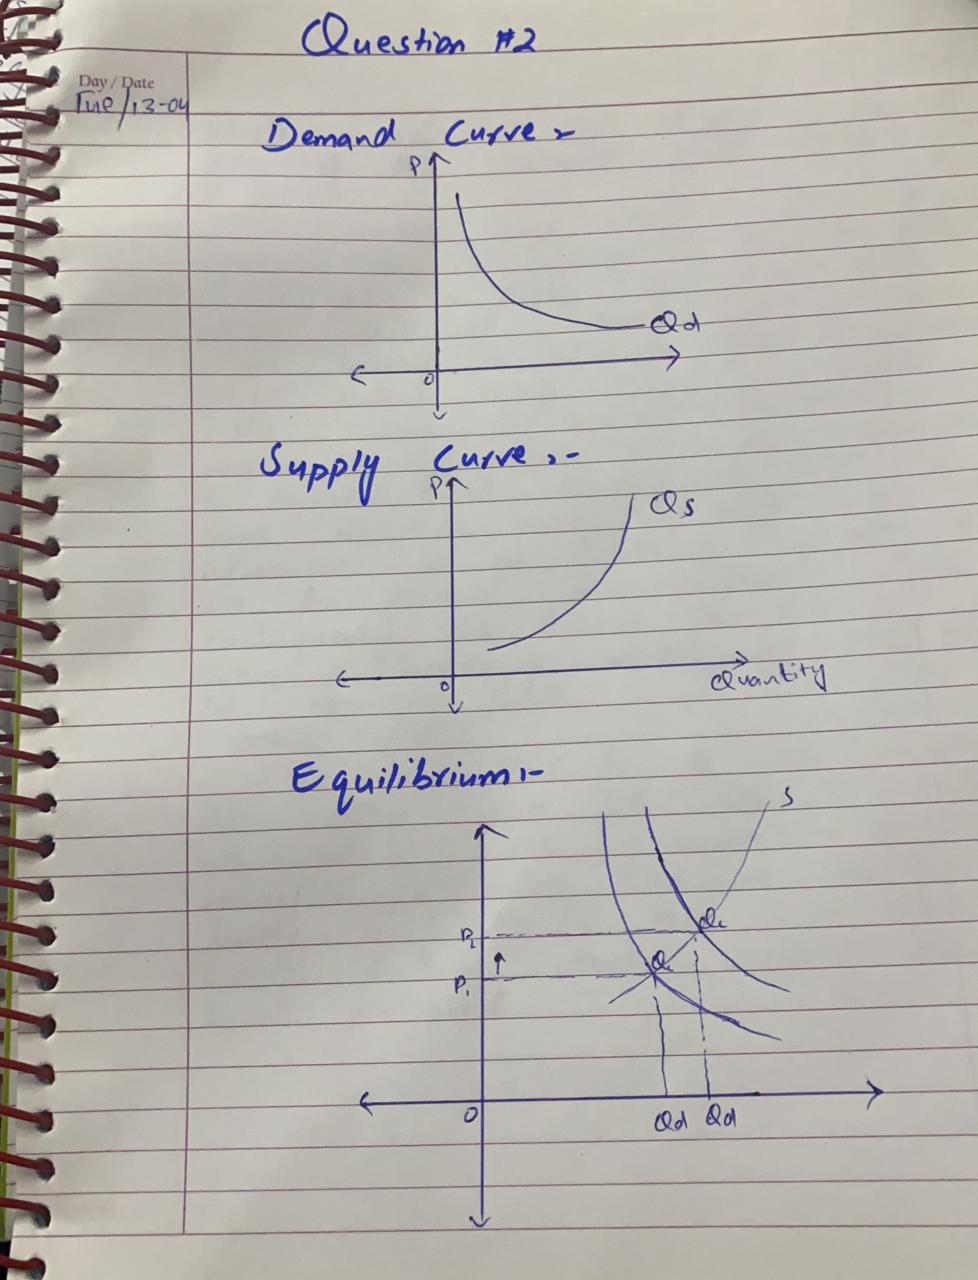 Question #2
Day / Date
Tue/13-04
Demand Curve :-
P
Qd
0
Supply Curve :-
P
Qs
0
Quantity
Equilibrium :-
S
P2
P1
0
Qd Qd